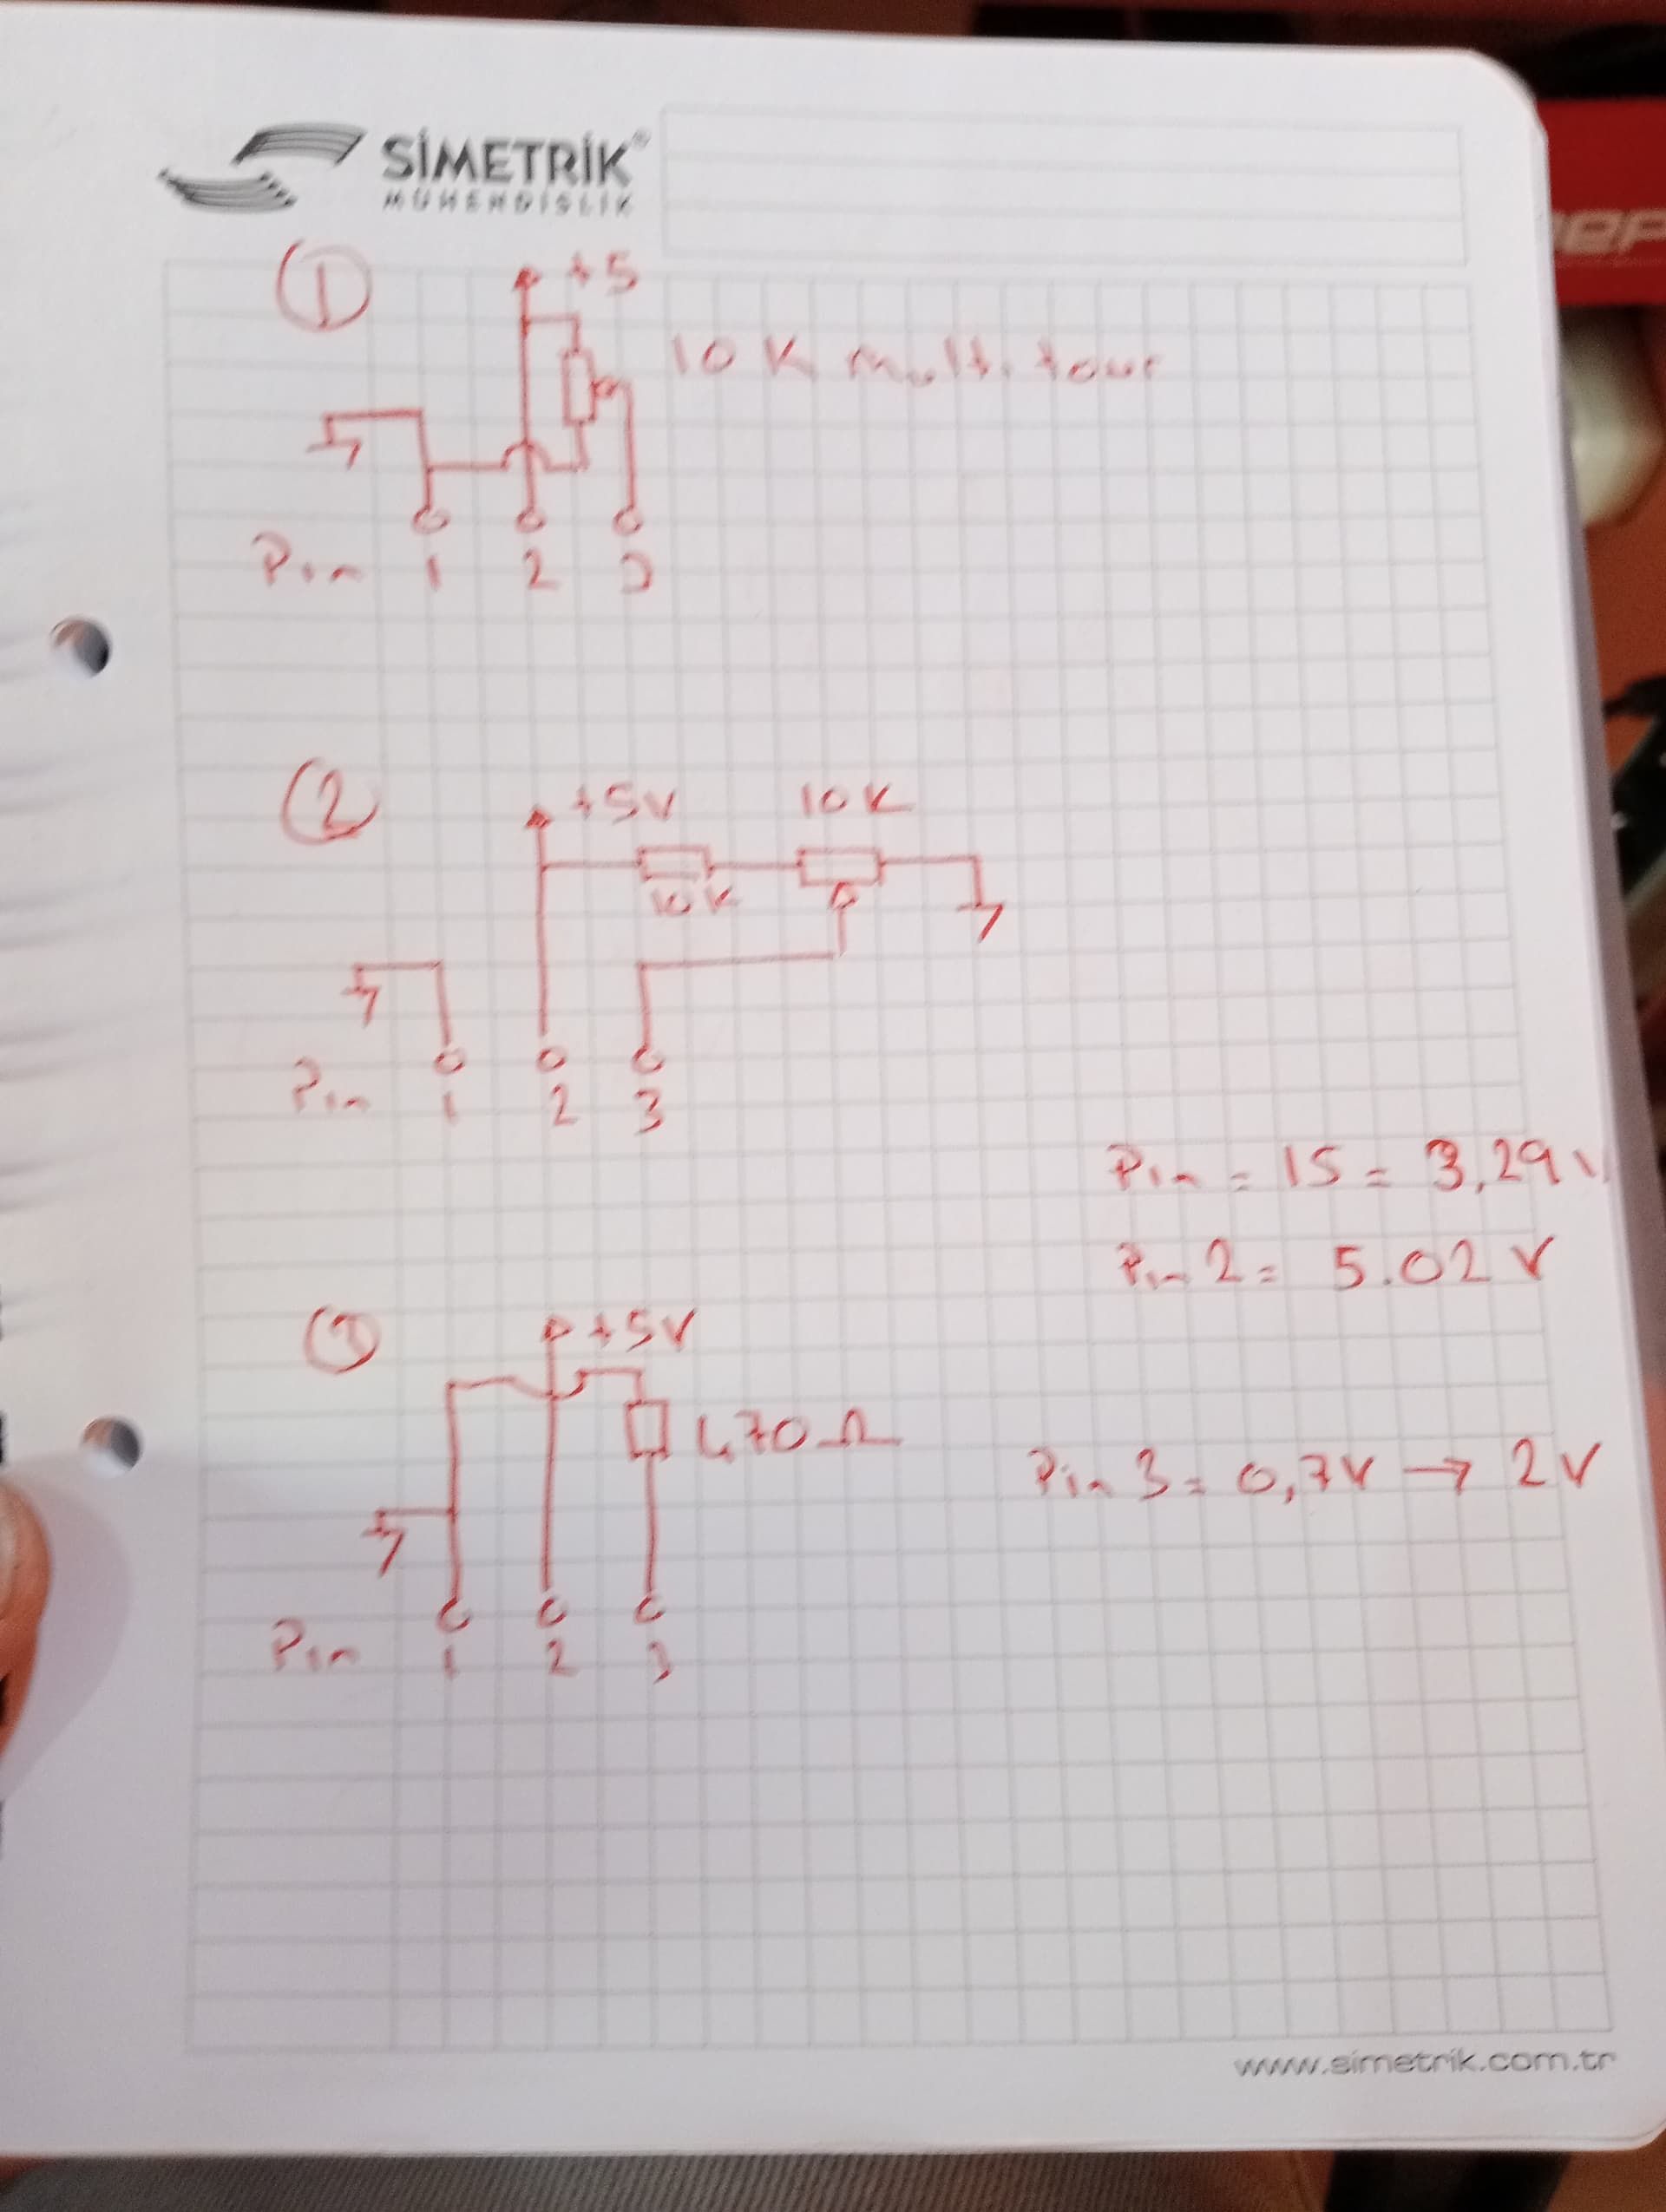 SİMETRİK®
MÜHENDİSLİK
1
+5
10 K multi tour
Pin 1 2 3
2
+5V 10K
10K
Pin 1 2 3
Pin = 15 = 3,29 V
Pin 2 = 5.02 V
3
+5V
470 Ω
Pin 3 = 0,7V → 2V
Pin 1 2 3
www.simetrik.com.tr